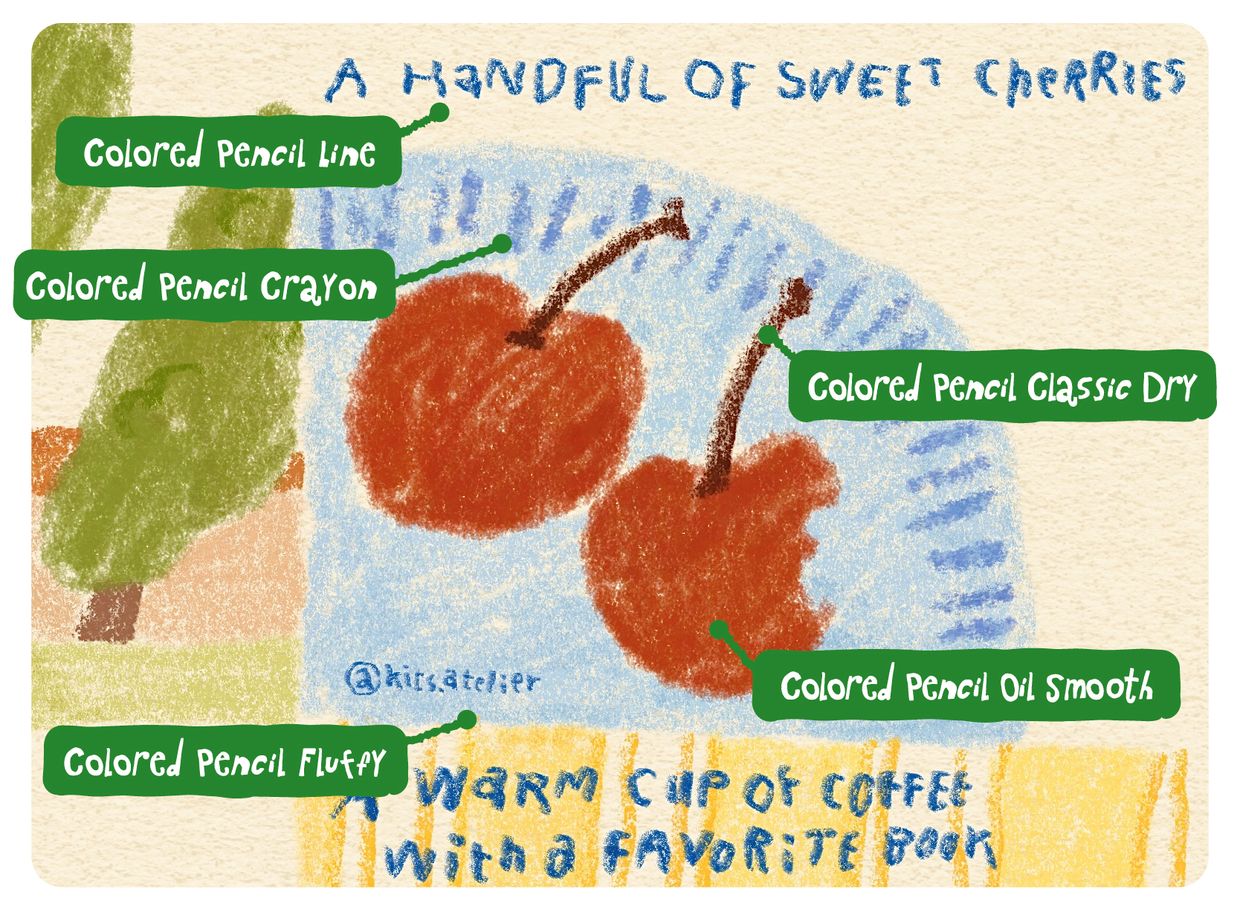 A HaNDFUL OF SWEET CheRRIES
Colored Pencil Line
Colored Pencil Crayon
Colored Pencil Classic Dry
@kits.atelier
Colored Pencil Oil Smooth
Colored Pencil Fluffy
A WaRM CUP Of COFFEE
With a FAVORiTE BOOK